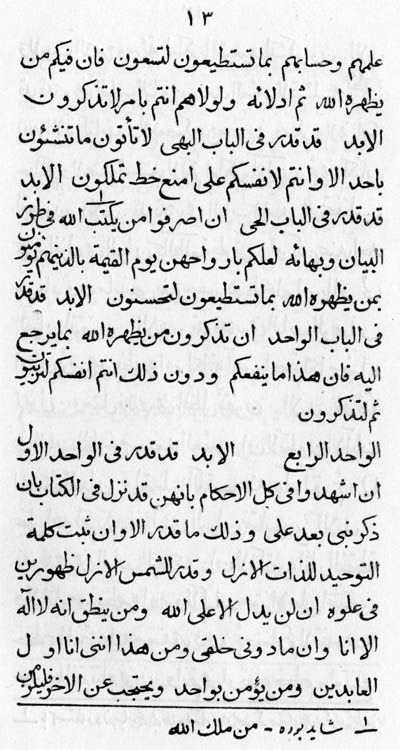 ١٣
علمهم وحسابهم بما تستطيعون لتسعون فان فيكم من
يظهره الله ثم ادلائه ولولاهم انتم بامر لا تذكرون
الابد قد قدر فى الباب البهى لا تأتون ما تنشئون
باحد الا وانتم لانفسكم على امنع خط تملكون الابد
قد قدر فى الباب الحى ان اصرفوا من يكتب الله فى طرز
البيان وبهائه لعلكم بارواحهن يوم القيمة بالذينهم يؤمنون
بمن يظهره الله بما تستطيعون لتحسنون الابد قد قدر
فى الباب الواحد ان تذكرون من يظهره الله بما يرجع
اليه فان هذا ما ينفعكم ودون ذلك انتم انفسكم
ثم لتذكرون
الواحد الرابع الابد قد قدر فى الواحد الاول
ان اشهدوا فى كل الاحكام بانهن قد نزل فى الكتاب بان
ذكرنى بعد على وذلك ما قدر الا وان يثبت كلمة
التوحيد للذات الازل وقدر للشمس الازل ظهورين
فى علوه ان لن يدل الا على الله ومن ينطق انه لا اله
الا انا وان ما دونى خلقى ومن هذا اننى انا اول
العابدين ومن يؤمن بواحد ويحتجب عن الاخر
شايد بوده - من ملك الله